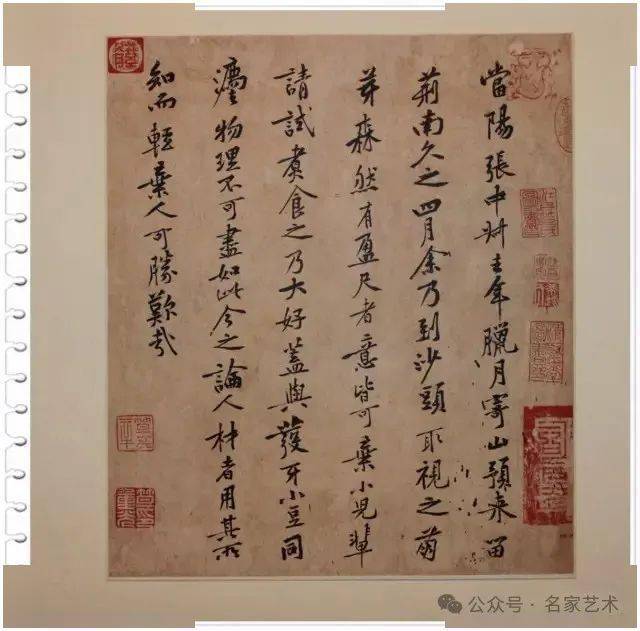 當陽張中叔去年臘月寄山預來留
荊南久之四月余乃到沙頭取視之萌
芽森然有盈尺者意皆可棄小兒輩
請試煮食之乃大好蓋與發牙小豆同
灋物理不可盡如此今之論人材者用其所
知而輕棄人可勝歎哉
公众号·名家艺术